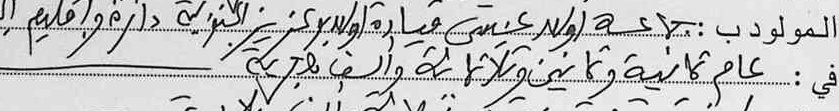 المولود ب: جماعة اولاد عيسى قيادة اولاد بوعزيز الجنوبية دائرة واقليم
في: عام ثمانية وثمانين وثلاثمائة وألف هجرية